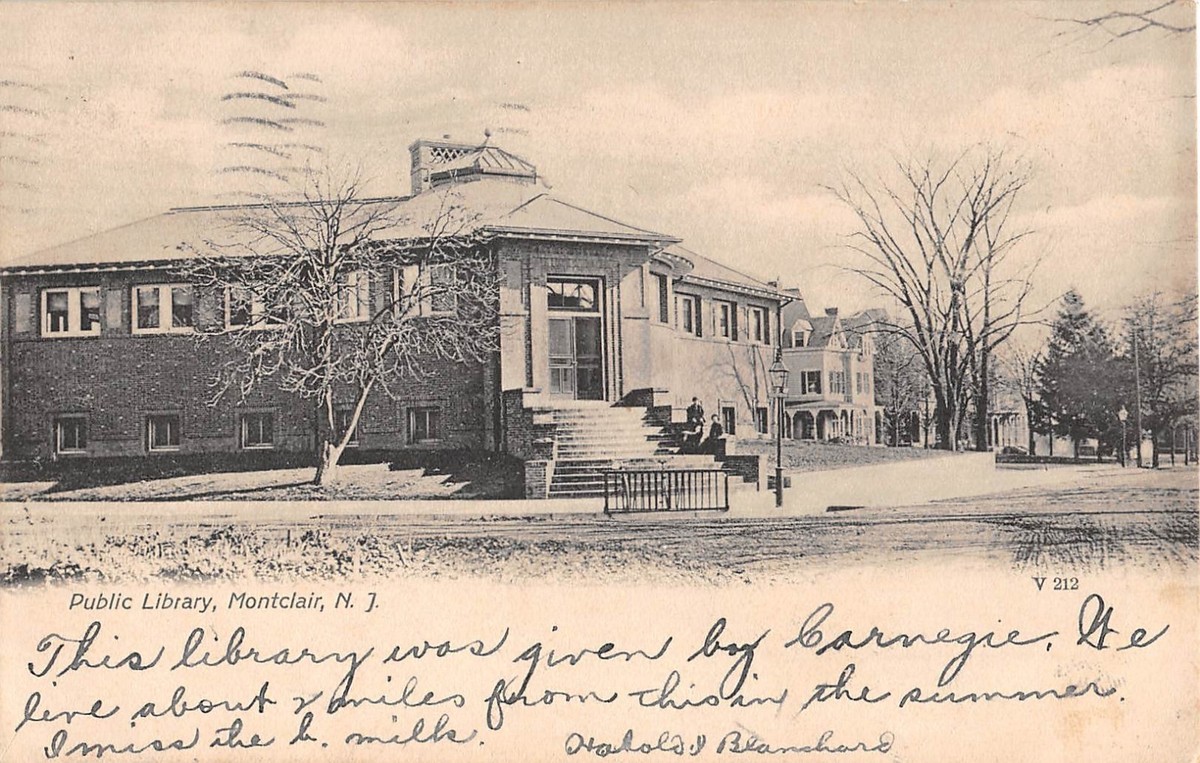 V 212
Public Library, Montclair, N. J.
This library was given by Carnegie. We
live about 2 miles from this in the summer.
I miss the b. milk. Harold Blanchard